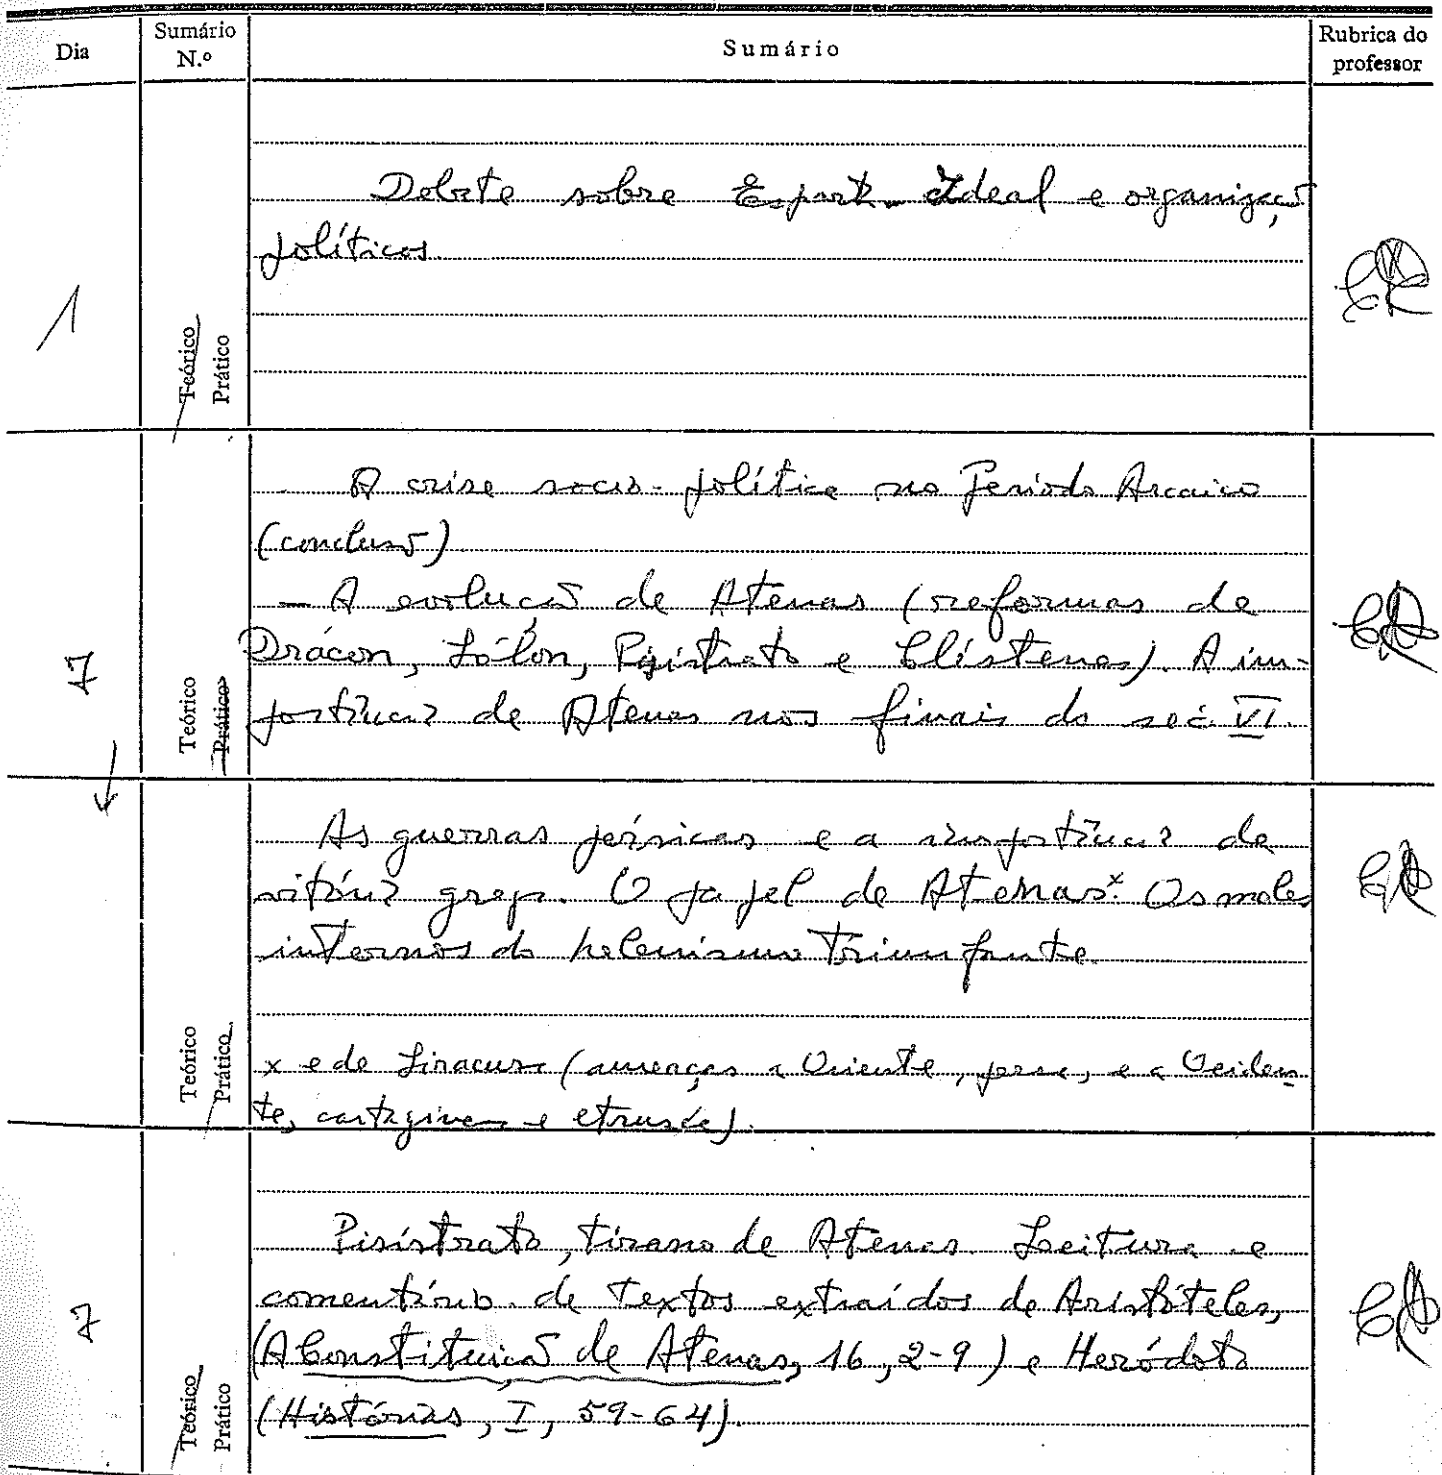 Dia
Sumário
N.º
Sumário
Rubrica do
professor
Debate sobre Esparta. Ideal e organização
políticos.
1
Teórico
Prático
A crise socio-política no Período Arcaico
(conclusão)
— A evolução de Atenas (reformas de
Drácon, Sólon, Pisístrato e Clístenes). A im-
portância de Atenas nos finais do séc. VI.
7
Teórico
Prático
As guerras pérsicas e a importância da
vitória grega. O papel de Atenas.ˣ Os males
internos do helenismo triunfante.
x e de Siracusa (ameaças a Oriente, persa, e a Ociden-
te, cartaginesa e etrusca).
Teórico
Prático
Pisístrato, tirano de Atenas. Leitura e
comentário de textos extraídos de Aristóteles,
(A Constituição de Atenas, 16, 2-9) e Heródoto
(Histórias, I, 59-64).
7
Teórico
Prático